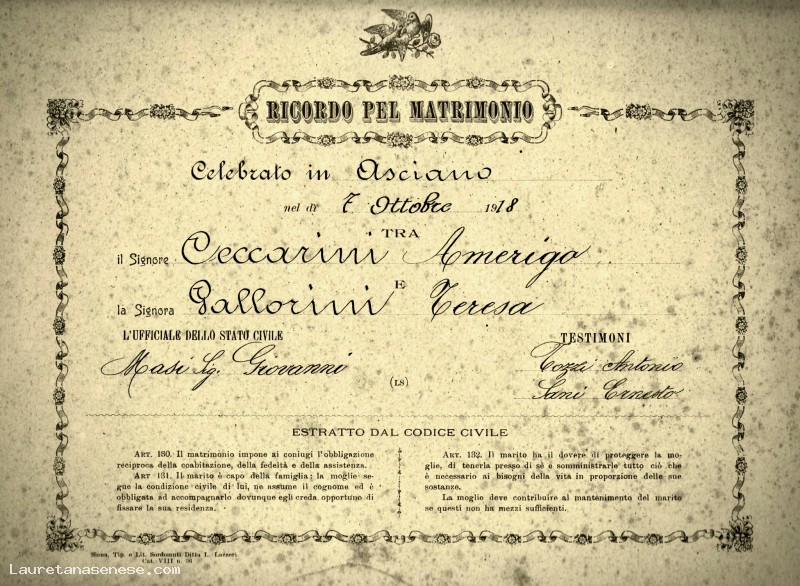 RICORDO PEL MATRIMONIO
Celebrato in Asciano
nel dì 7 Ottobre 1918
TRA
il Signore Ceccarini Amerigo
E
la Signora Gallorini Teresa
L'UFFICIALE DELLO STATO CIVILE
TESTIMONI
Masi Sg. Giovanni
Tozzi Antonio
(LS)
Sani Ernesto
ESTRATTO DAL CODICE CIVILE
ART. 130. Il matrimonio impone ai coniugi l'obbligazione
reciproca della coabitazione, della fedeltà e della assistenza.
ART. 131. Il marito è capo della famiglia: la moglie se-
gue la condizione civile di lui, ne assume il cognome ed è
obbligata ad accompagnarlo dovunque egli creda opportuno di
fissare la sua residenza.
ART. 132. Il marito ha il dovere di proteggere la mo-
glie, di tenerla presso di sè e somministrarle tutto ciò che
è necessario ai bisogni della vita in proporzione delle sue
sostanze.
La moglie deve contribuire al mantenimento del marito
se questi non ha mezzi sufficienti.
Siena, Tip. e Lit. Sordomuti Ditta L. Lazzeri
Cat. VIII n. 36
Lauretanasenese.com